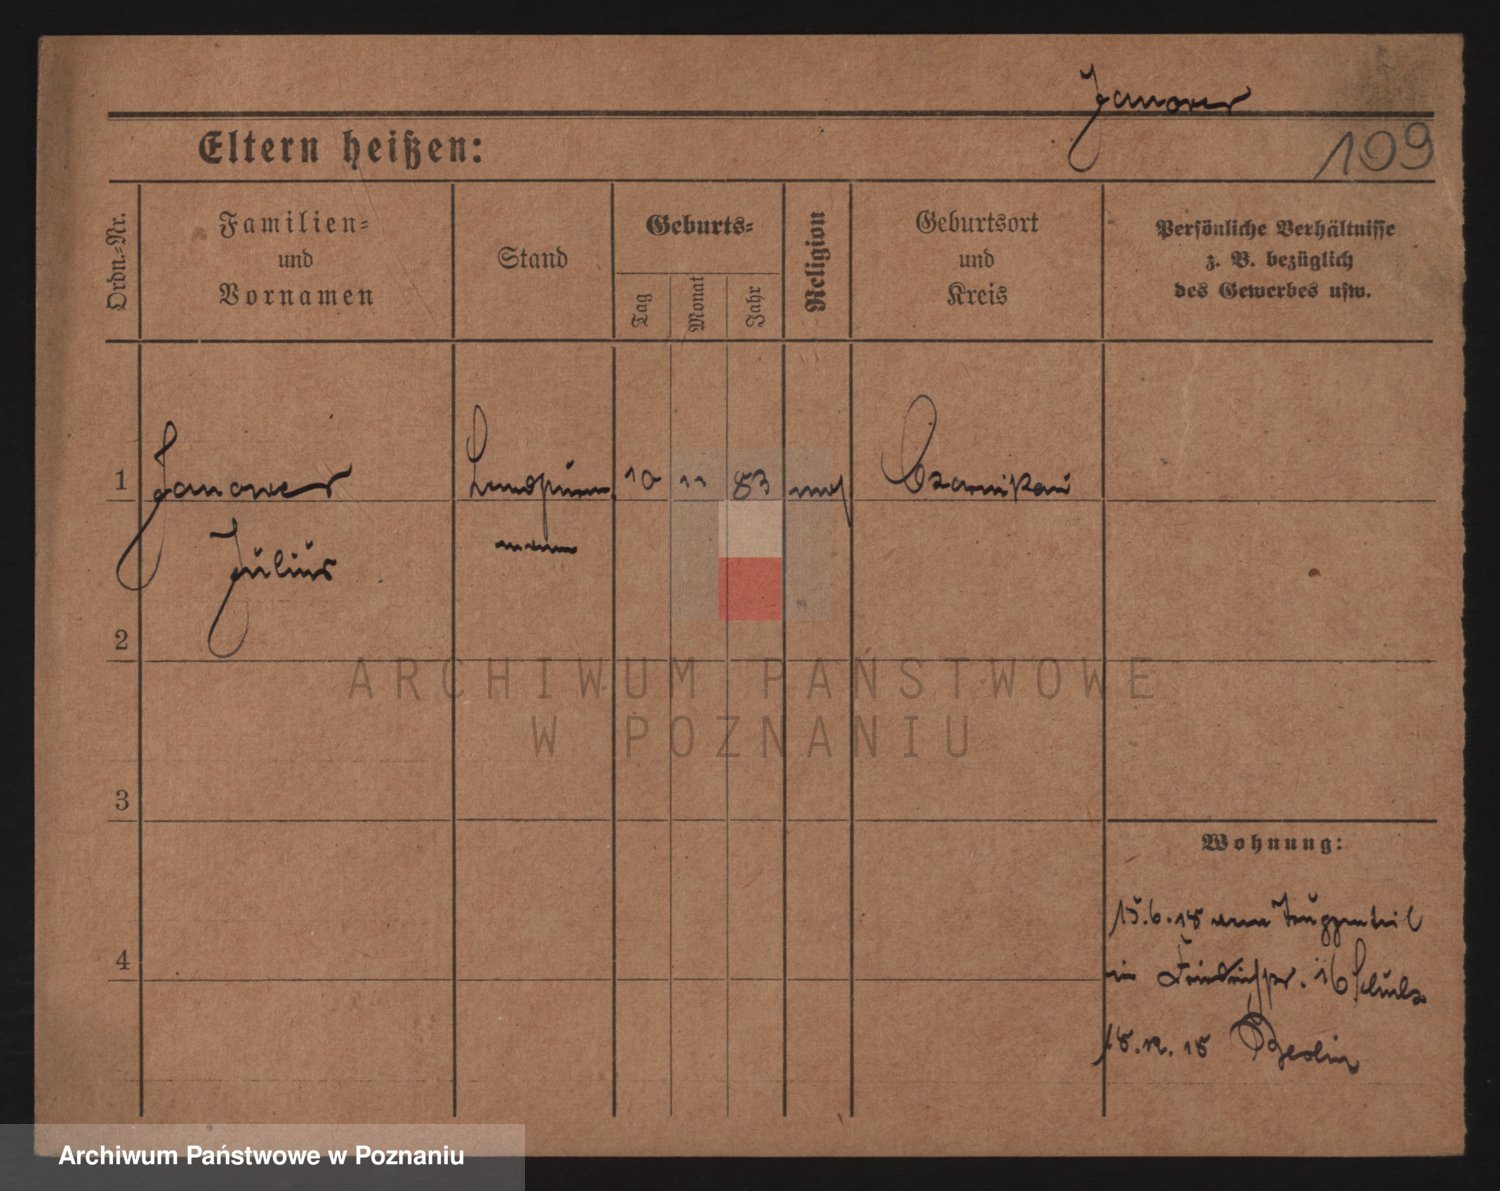 Janower
109
Eltern heißen:
Ordn.-Nr.
Familien-
und
Vornamen
Stand
Geburts-
Tag
Monat
Jahr
Religion
Geburtsort
und
Kreis
Persönliche Verhältnisse
z. B. bezüglich
des Gewerbes usw.
1
Janower
10 11 83
mos
Czarnikau
Julius
2
ARCHIWUM PAŃSTWOWE
W POZNANIU
3
Wohnung:
15.6.18 vom Truppenteil
in
16 Schulz
4
18.12.18 Berlin
Archiwum Państwowe w Poznaniu